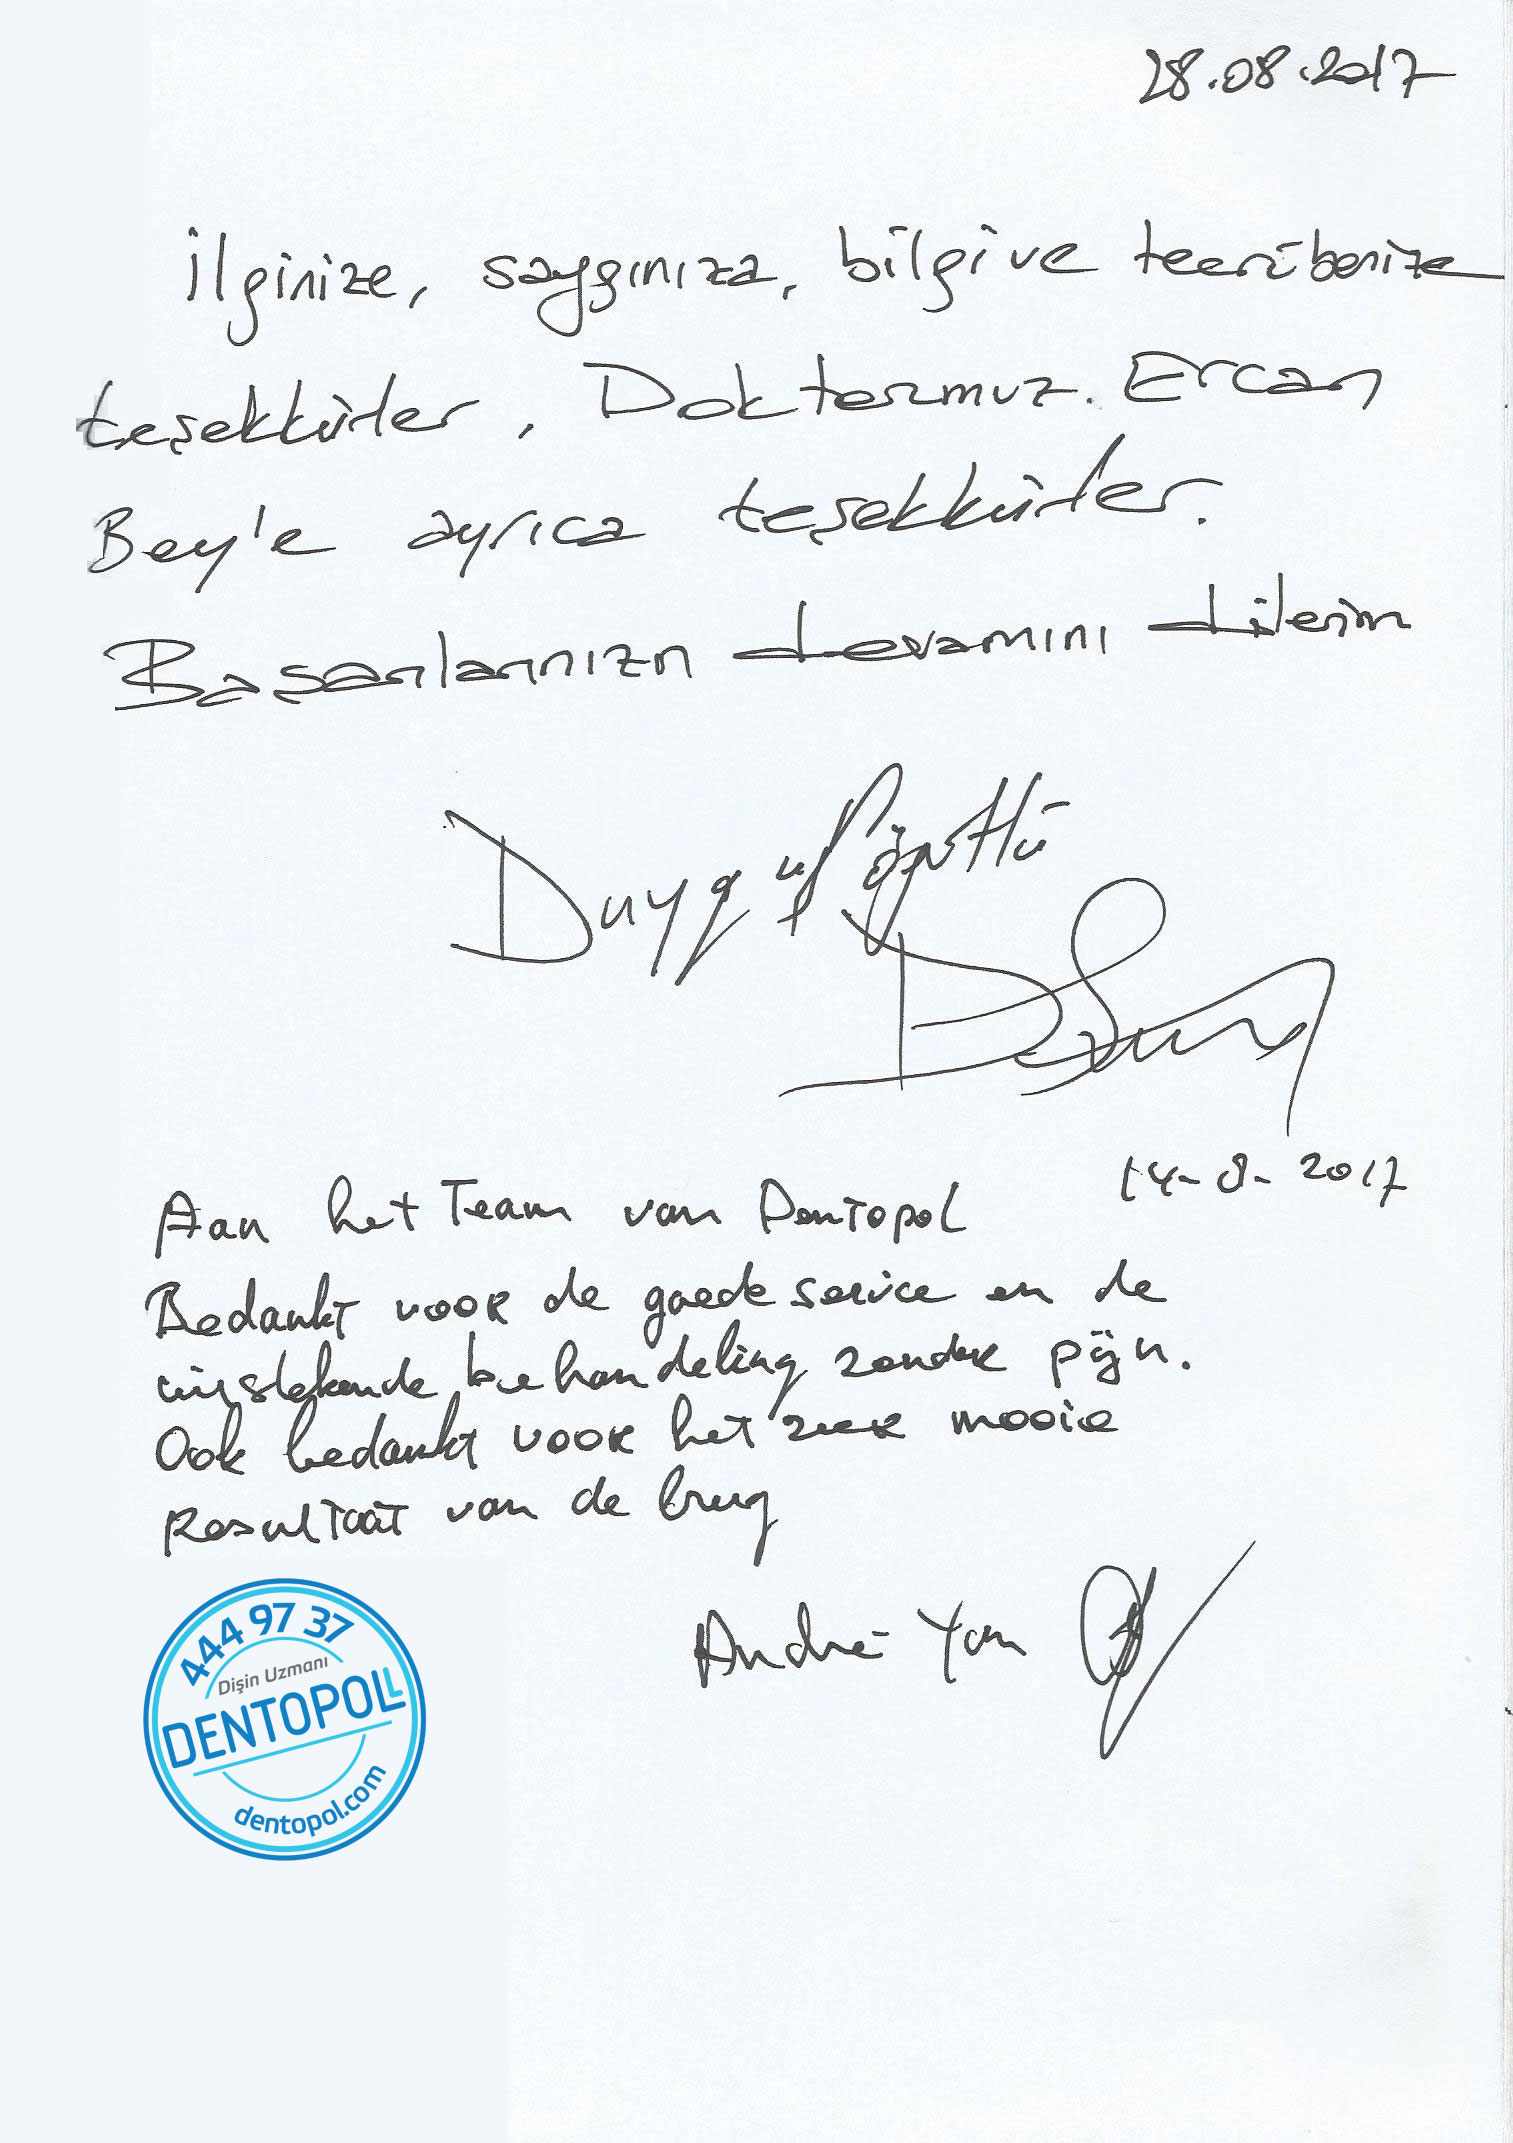 28.08.2017
İlginize, saygınıza, bilgi ve tecrübenize
teşekkürler, Doktorumuz. Ercan
Bey'e ayrıca teşekkürler.
Başarılarınızın devamını dilerim
Duygu
14-8-2017
Aan het Team van Dentopol
Bedankt voor de goede service en de
uitstekende behandeling zonder pijn.
Ook bedankt voor het zeer mooie
Resultaat van de brug
André Yan
444 97 37
Dişin Uzmanı
DENTOPOL
dentopol.com